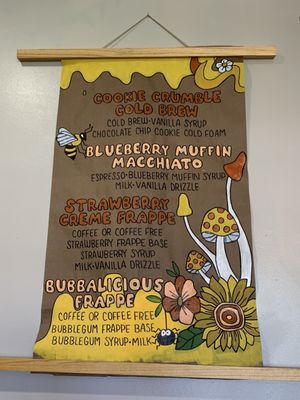 COOKIE CRUMBLE
COLD BREW
COLD BREW·VANILLA SYRUP
CHOCOLATE CHIP COOKIE COLD FOAM
BLUEBERRY MUFFIN
MACCHIATO
ESPRESSO·BLUEBERRY MUFFIN SYRUP
MILK·VANILLA DRIZZLE
STRAWBERRY
CREME FRAPPE
COFFEE OR COFFEE FREE
STRAWBERRY FRAPPE BASE
STRAWBERRY SYRUP
MILK·VANILLA DRIZZLE
BUBBALICIOUS
FRAPPE
COFFEE OR COFFEE FREE
BUBBLEGUM FRAPPE BASE
BUBBLEGUM SYRUP·MILK